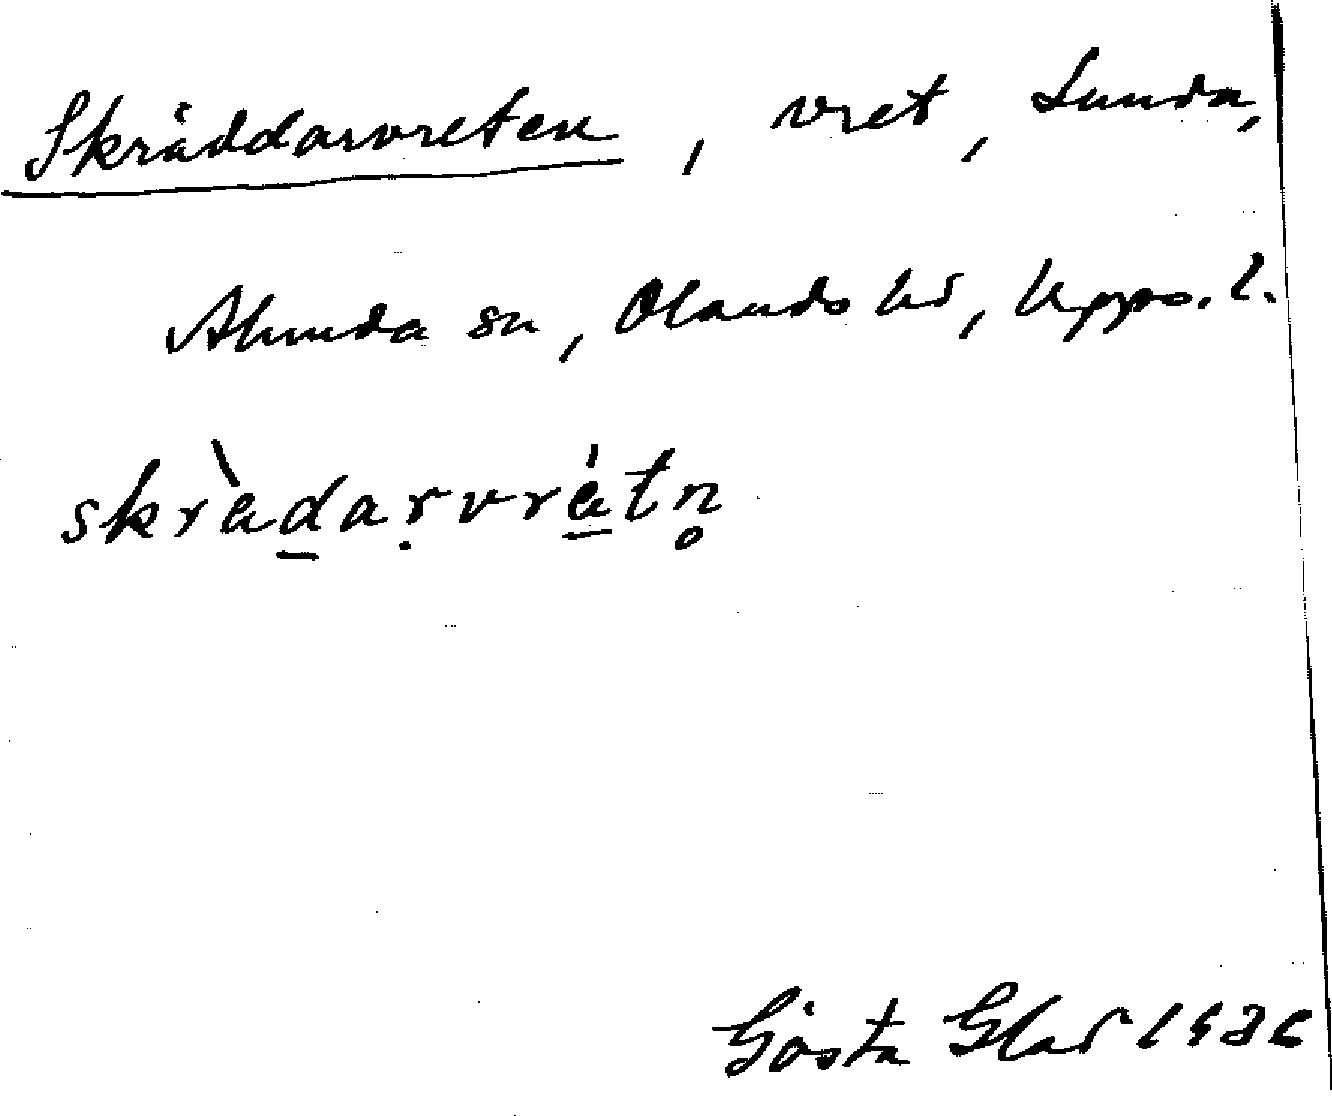 Skräddarvreten, vret, Lunda,
Alunda sn, Olands hd, Upps. l.
skrὰd̲arṿrát̲n̥
Gösta Glad 1936